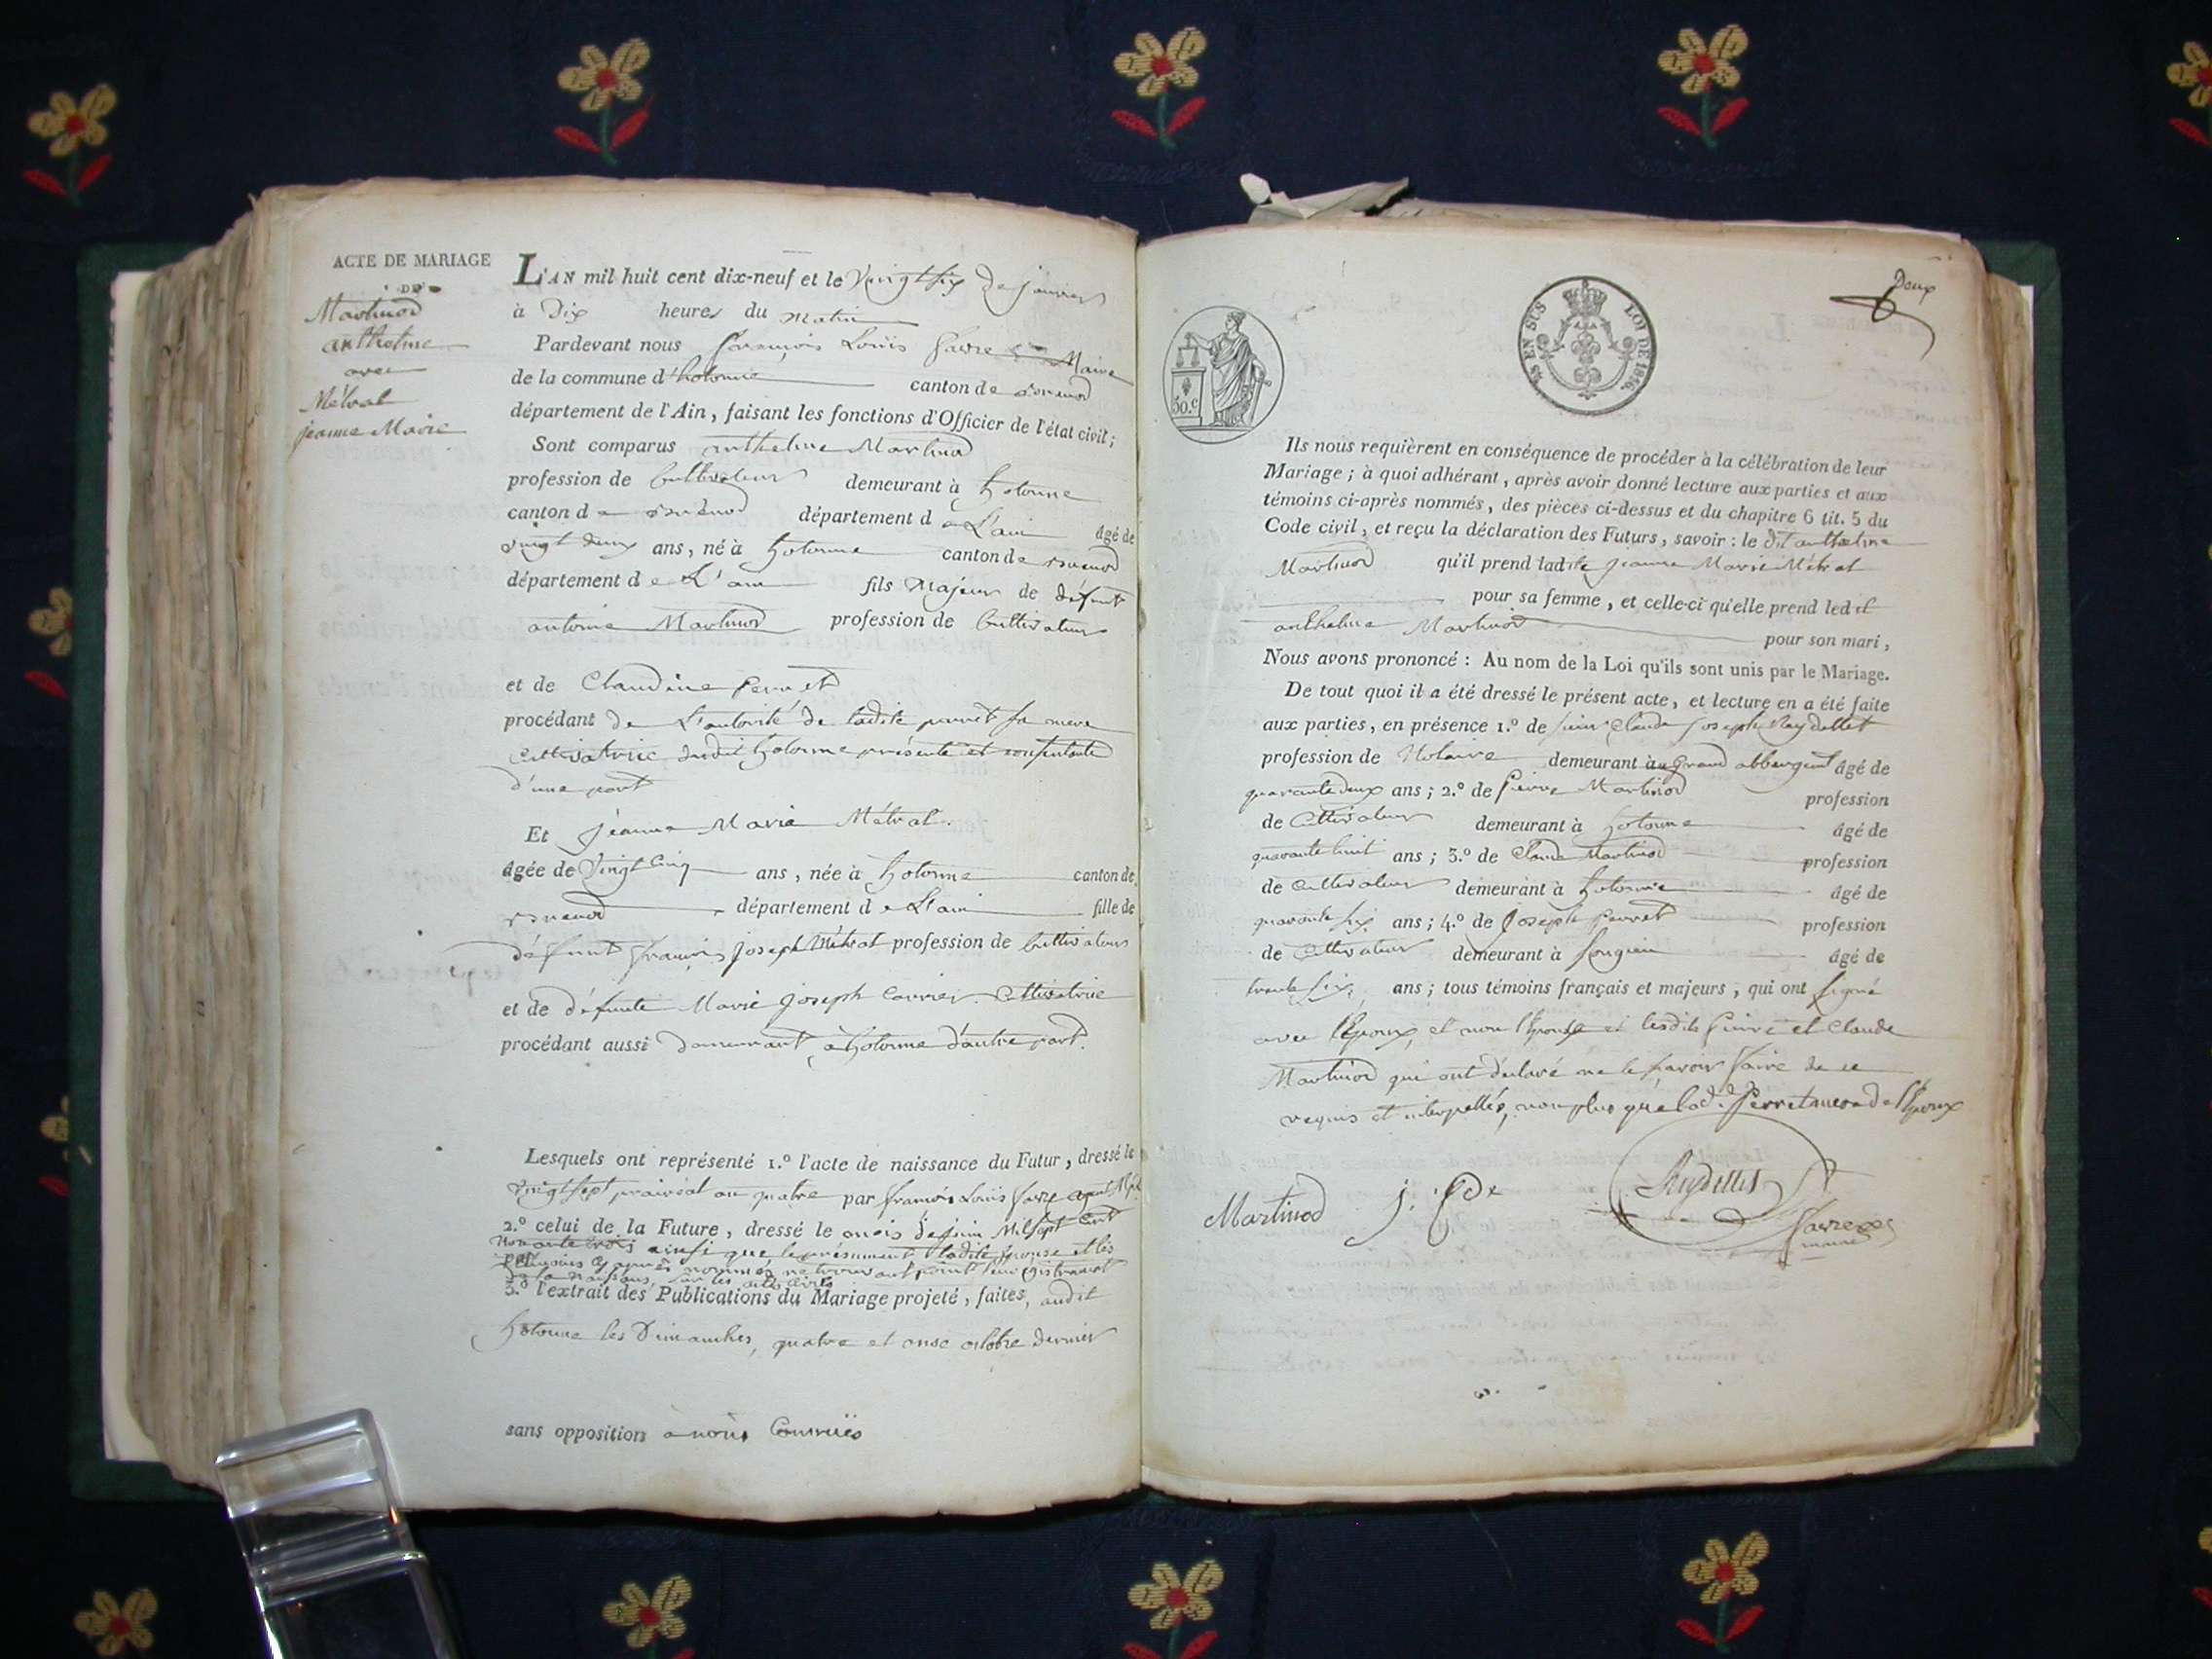 ACTE DE MARIAGE
DE
Martinod
anthelme
avec
Métral
jeanne Marie
L'AN mil huit cent dix-neuf et le Vingt six de janvier
à Dix heures du matin
Pardevant nous françois Louïs favre Maire
de la commune d'hotonne canton de
département de l'Ain, faisant les fonctions d'Officier de l'état civil;
Sont comparus anthelme Martinod
profession de Cultivateur demeurant à hotonne
canton de département de L'ain âgé de
vingt deux ans, né à hotonne canton de
département de L'ain fils Majeur de défunt
antoine Martinod profession de Cultivateur
et de Claudine Perret
procédant de L'autorité de ladite perret sa mere
Cultivatrice dudit hotonne présente et consentante
d'une part
Et jeanne Marie Métral.
âgée de Vingt Cinq ans, née à hotonne canton de
département de L'ain fille de
défunt françois joseph Métral profession de Cultivateur
et de défunte Marie joseph Carrier Cultivatrice
procédant aussi demeurant à hotonne d'autre part.
Lesquels ont représenté 1.º l'acte de naissance du Futur, dressé le
Vingt sept prairéal an quatre par françois Louïs favre agent
2.º celui de la Future, dressé le onois de juin Mil sept Cent
Nonante trois ainsi que le présument ladite épouse et les
témoins cy après nommés ne trouvant point
de sa naissance, sur les actes civils
3.º l'extrait des Publications du Mariage projeté, faites, audit
hotonne les Dimanches, quatre et onse octobre dernier
sans opposition à nous Connuës
Deux
50.c
EN SUS
LOI DE 1816.
Ils nous requièrent en conséquence de procéder à la célébration de leur
Mariage; à quoi adhérant, après avoir donné lecture aux parties et aux
témoins ci-après nommés, des pièces ci-dessus et du chapitre 6 tit. 5 du
Code civil, et reçu la déclaration des Futurs, savoir: le dit anthelme
Martinod qu'il prend ladite jeanne Marie Métral
pour sa femme, et celle-ci qu'elle prend ledit
anthelme Martinod pour son mari,
Nous avons prononcé: Au nom de la Loi qu'ils sont unis par le Mariage.
De tout quoi il a été dressé le présent acte, et lecture en a été faite
aux parties, en présence 1.º de sieur Claude joseph Reydellet
profession de Notaire demeurant au Grand abbergement âgé de
quarante deux ans; 2.º de Pierre Martinod profession
de Cultivateur demeurant à hotonne âgé de
quarante huit ans; 3.º de Claude Martinod profession
de Cultivateur demeurant à hotonne âgé de
quarante six ans; 4.º de Joseph Perret profession
de Cultivateur demeurant à Songieu âgé de
trente six ans; tous témoins français et majeurs, qui ont signé
avec l'Epoux, et non l'Epouse et lesdits Pierre et Claude
Martinod qui ont déclaré ne le savoir faire de ce
requis et interpellés, non plus que lad. Perret mere de l'Epoux
Martinod
Reydellet
favre
maire